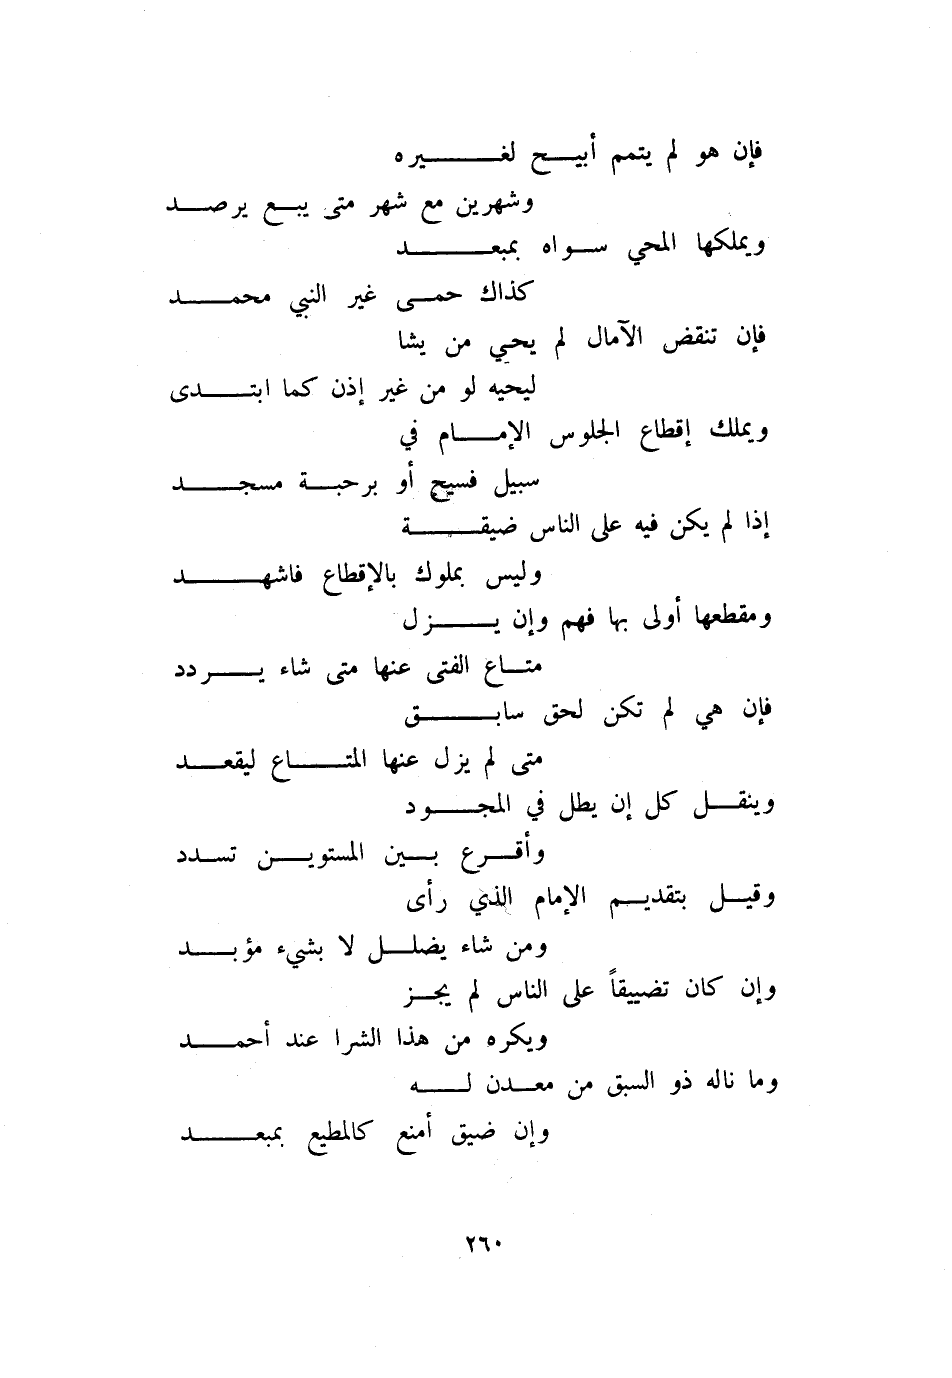 فإن هو لم يتمم أبيح لغيره
وشهرين مع شهر متى يبع يرصد
ويملكها المحي سواه بمبعد
كذاك حمى غير النبي محمد
فإن تنقض الآمال لم يحي من يشا
ليحيه لو من غير إذن كما ابتدى
ويملك إقطاع الجلوس الإمام في
سبيل فسيح أو برحبة مسجد
إذا لم يكن فيه على الناس ضيقة
وليس بملوك بالإقطاع فاشهد
ومقطعها أولى بها فهم وإن يزل
متاع الفتى عنها متى شاء يردد
فإن هي لم تكن لحق سابق
متى لم يزل عنها المتاع ليقعد
وينقل كل إن يطل في المجود
وأقرع بين المستوين تسدد
وقيل بتقديم الإمام الذي رأى
ومن شاء يضلل لا بشيء مؤبد
وإن كان تضييقاً على الناس لم يجز
ويكره من هذا الشرا عند أحمد
وما ناله ذو السبق من معدن له
وإن ضيق أمنع كالمطيع بمبعد
٢٦٠